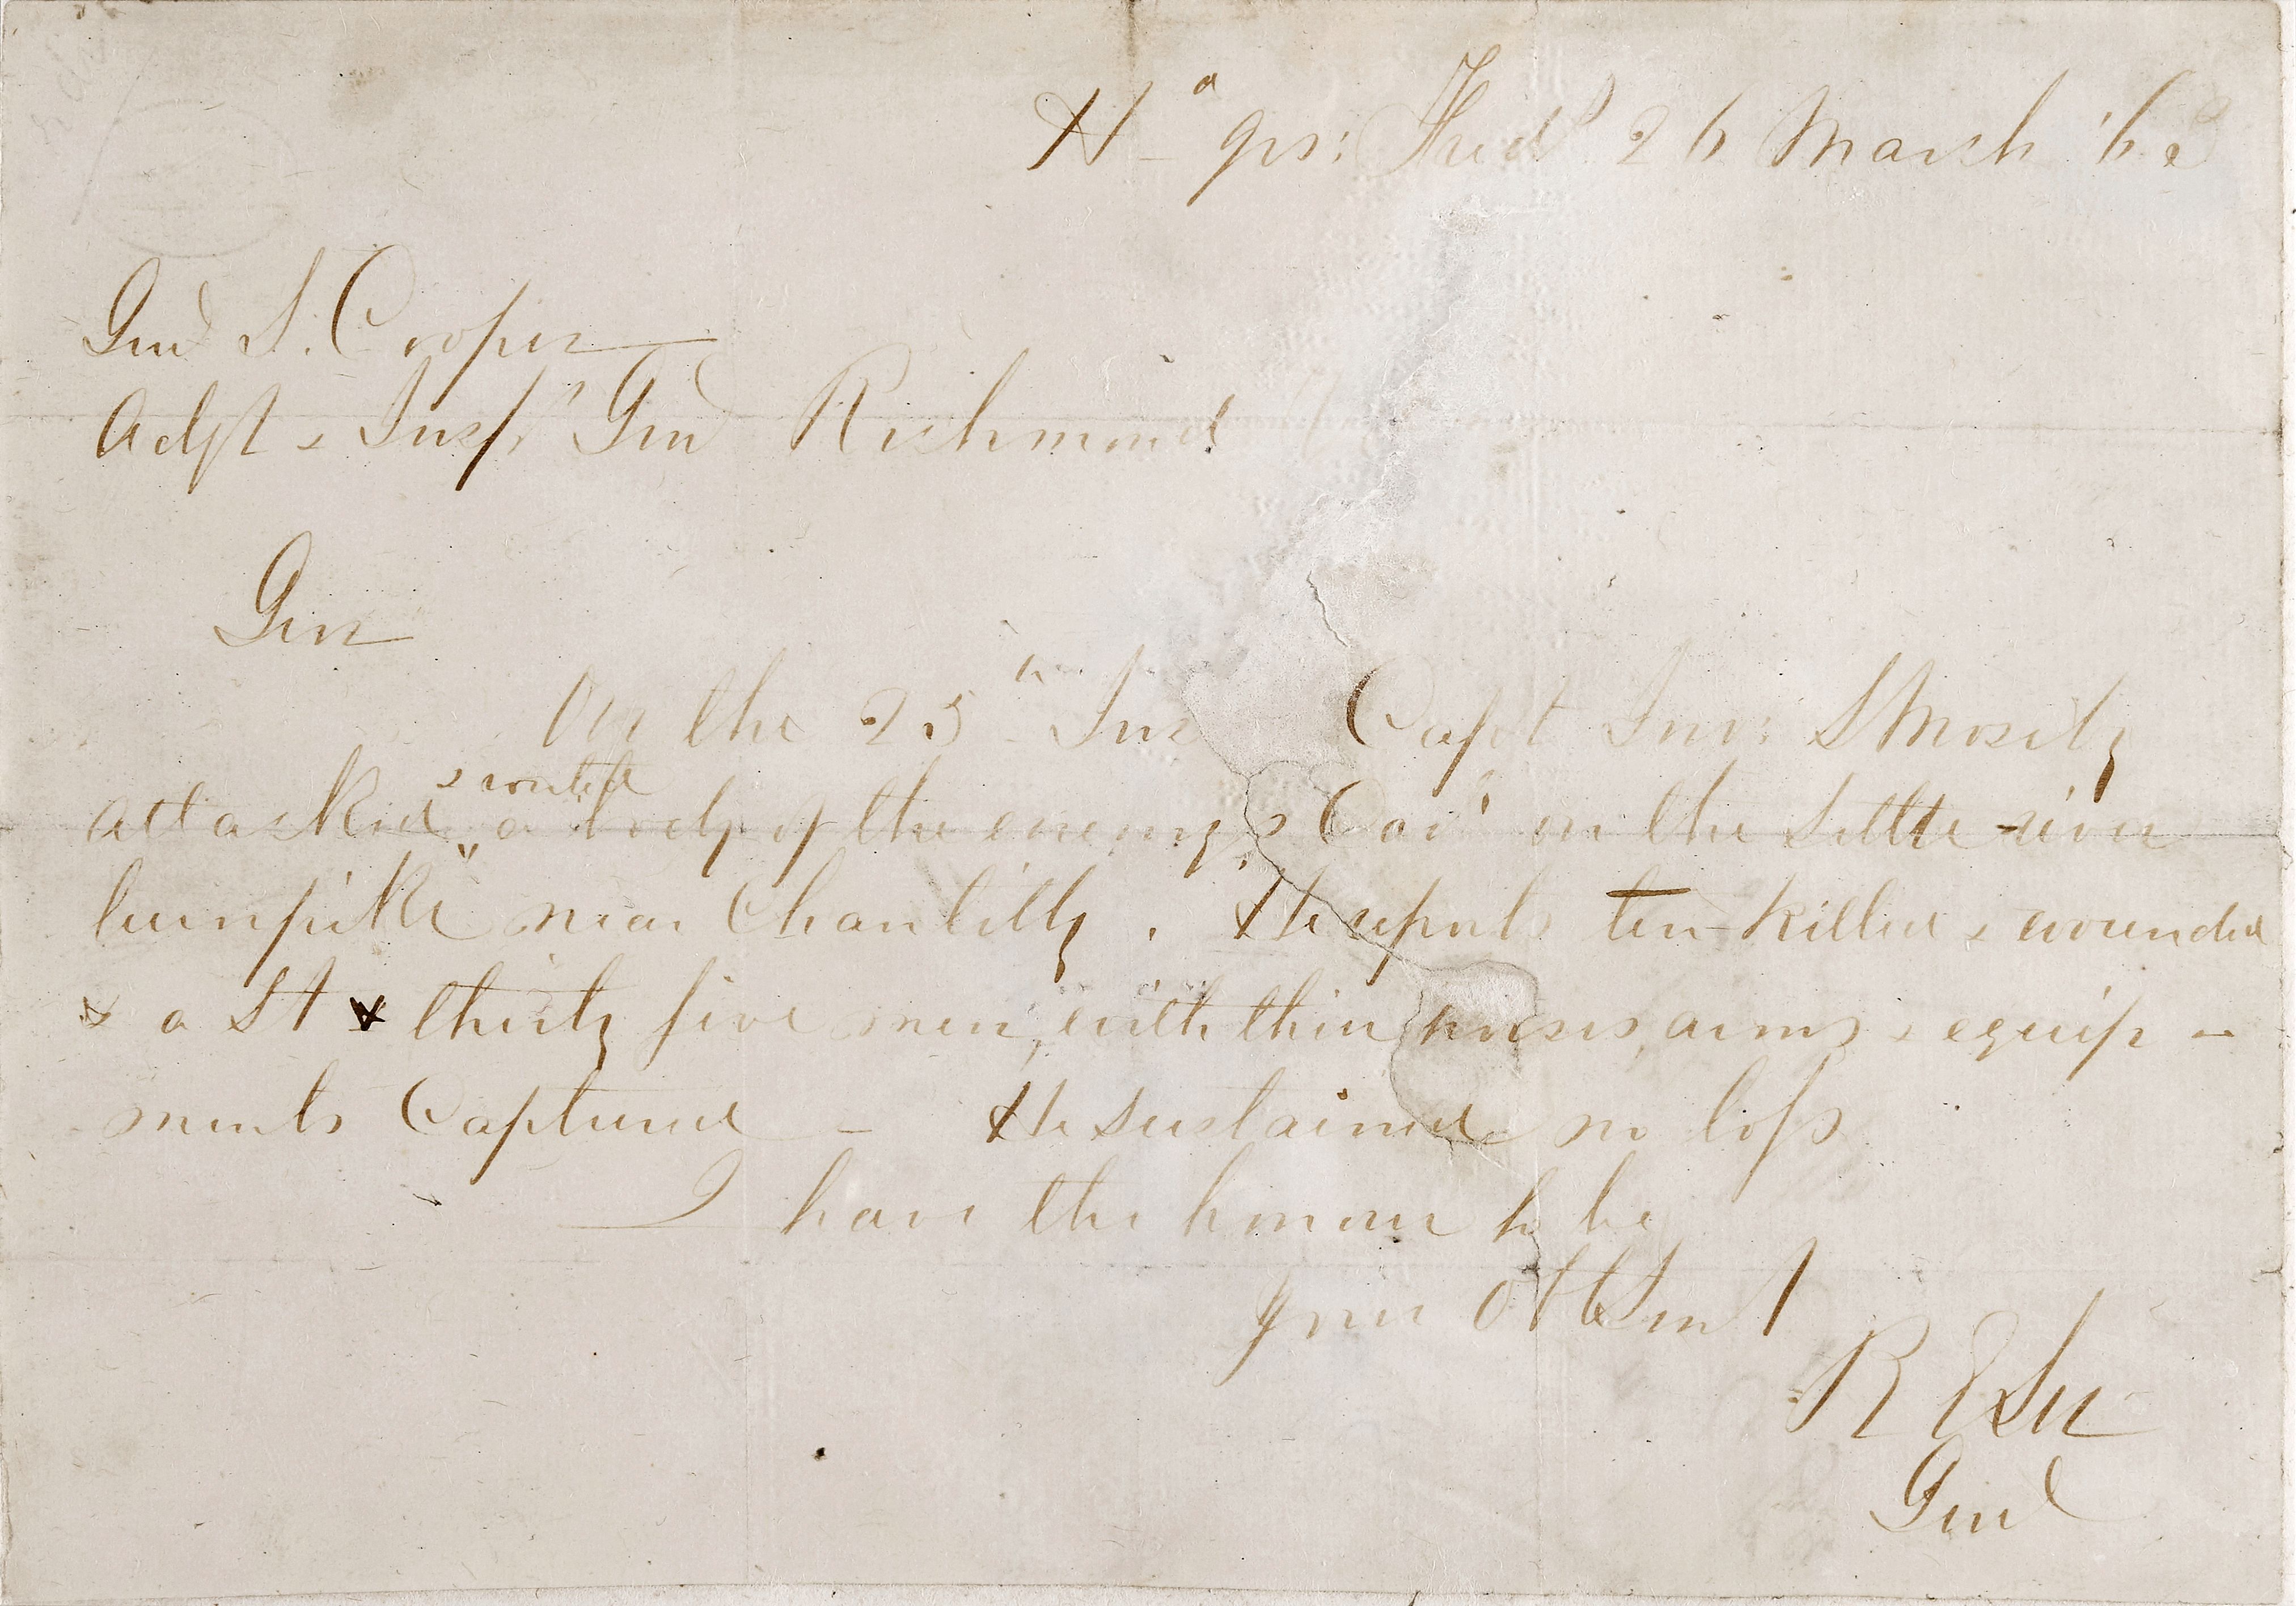 Hd qrs: Fred 26 March '63
Genl S. Cooper
Adjt & Insp Genl Richmond
Genl
On the 25th Ins Capt Jno: S Mosby
& routed
attacked a body of the enemy's Cavy on the Little river
turnpike" near Chantilly. He reports ten killed & wounded
& a Lt & thirty five men, with their horses, arms & equip-
ments Captured - He sustained no loss
I have the honour to be
your Obt Servt
R E Lee
Genl